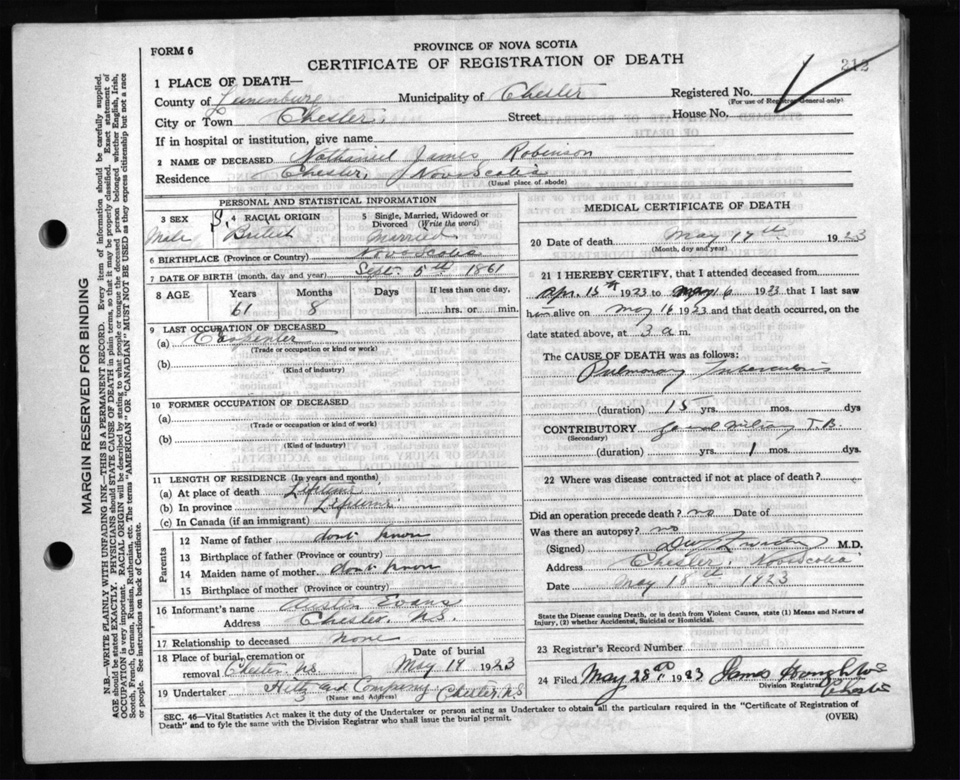 FORM 6
PROVINCE OF NOVA SCOTIA
CERTIFICATE OF REGISTRATION OF DEATH
212
1 PLACE OF DEATH—
County of Lunenburg Municipality of Chester Registered No.
(For use of Registrar General only)
City or Town Chester Street House No.
If in hospital or institution, give name
2 NAME OF DECEASED Nathaniel James Robinson
Residence Chester, Nova Scotia
(Usual place of abode)
PERSONAL AND STATISTICAL INFORMATION
3 SEX Male
4 RACIAL ORIGIN British
5 Single, Married, Widowed or Divorced (Write the word) Married
6 BIRTHPLACE (Province or Country) Nova Scotia
7 DATE OF BIRTH (month, day and year) Sept. 5th 1861
8 AGE Years Months Days If less than one day,
61 8 hrs. or min.
9 LAST OCCUPATION OF DECEASED
(a) Carpenter
(Trade or occupation or kind or work)
(b)
(Kind of industry)
10 FORMER OCCUPATION OF DECEASED
(a)
(Trade or occupation or kind or work)
(b)
(Kind of industry)
11 LENGTH OF RESIDENCE (In years and months)
(a) At place of death Lifetime
(b) In province Lifetime
(c) In Canada (if an immigrant)
Parents
12 Name of father dont know
13 Birthplace of father (Province or country)
14 Maiden name of mother dont know
15 Birthplace of mother (Province or country)
16 Informant's name Evans
Address Chester N.S.
17 Relationship to deceased None
18 Place of burial, cremation or removal Chester N.S. Date of burial May 19 1923
19 Undertaker and Company Chester N.S.
(Name and Address)
MEDICAL CERTIFICATE OF DEATH
20 Date of death May 17th 1923
(Month, day and year)
21 I HEREBY CERTIFY, that I attended deceased from
Apr. 15th 1923 to May 16 1923 that I last saw
him alive on May 16 1923 and that death occurred, on the
date stated above, at 3 a m.
The CAUSE OF DEATH was as follows:
Pulmonary Tuberculosis
(duration) 15 yrs. mos. dys
CONTRIBUTORY miliary T.B.
(Secondary)
(duration) yrs. 1 mos. dys
22 Where was disease contracted if not at place of death?
Did an operation precede death? no Date of
Was there an autopsy? no
(Signed) M.D.
Address Chester, Nova Scotia
Date May 18th 1923
State the Disease causing Death, or in death from Violent Causes, state (1) Means and Nature of
Injury, (2) whether Accidental, Suicidal or Homicidal.
23 Registrar's Record Number
24 Filed May 28th 1923 James
Division Registrar
Chester
SEC. 46—Vital Statistics Act makes it the duty of the Undertaker or person acting as Undertaker to obtain all the particulars required in the "Certificate of Registration of
Death" and to fyle the same with the Division Registrar who shall issue the burial permit. (OVER)
MARGIN RESERVED FOR BINDING
N.B.—WRITE PLAINLY WITH UNFADING INK—THIS IS A PERMANENT RECORD. Every item of information should be carefully supplied.
AGE should be stated EXACTLY. PHYSICIANS should STATE CAUSE OF DEATH in plain terms, so that it may be properly classified. Exact statement of
OCCUPATION is very important. RACIAL ORIGIN will be described by stating to what people or tongue the deceased person belonged whether English, Irish,
Scotch, French, German, Russian, Ruthenian, etc. The terms "AMERICAN" OR "CANADIAN" MUST NOT BE USED as they express citizenship but not a race
or people. See instructions on back of Certificate.